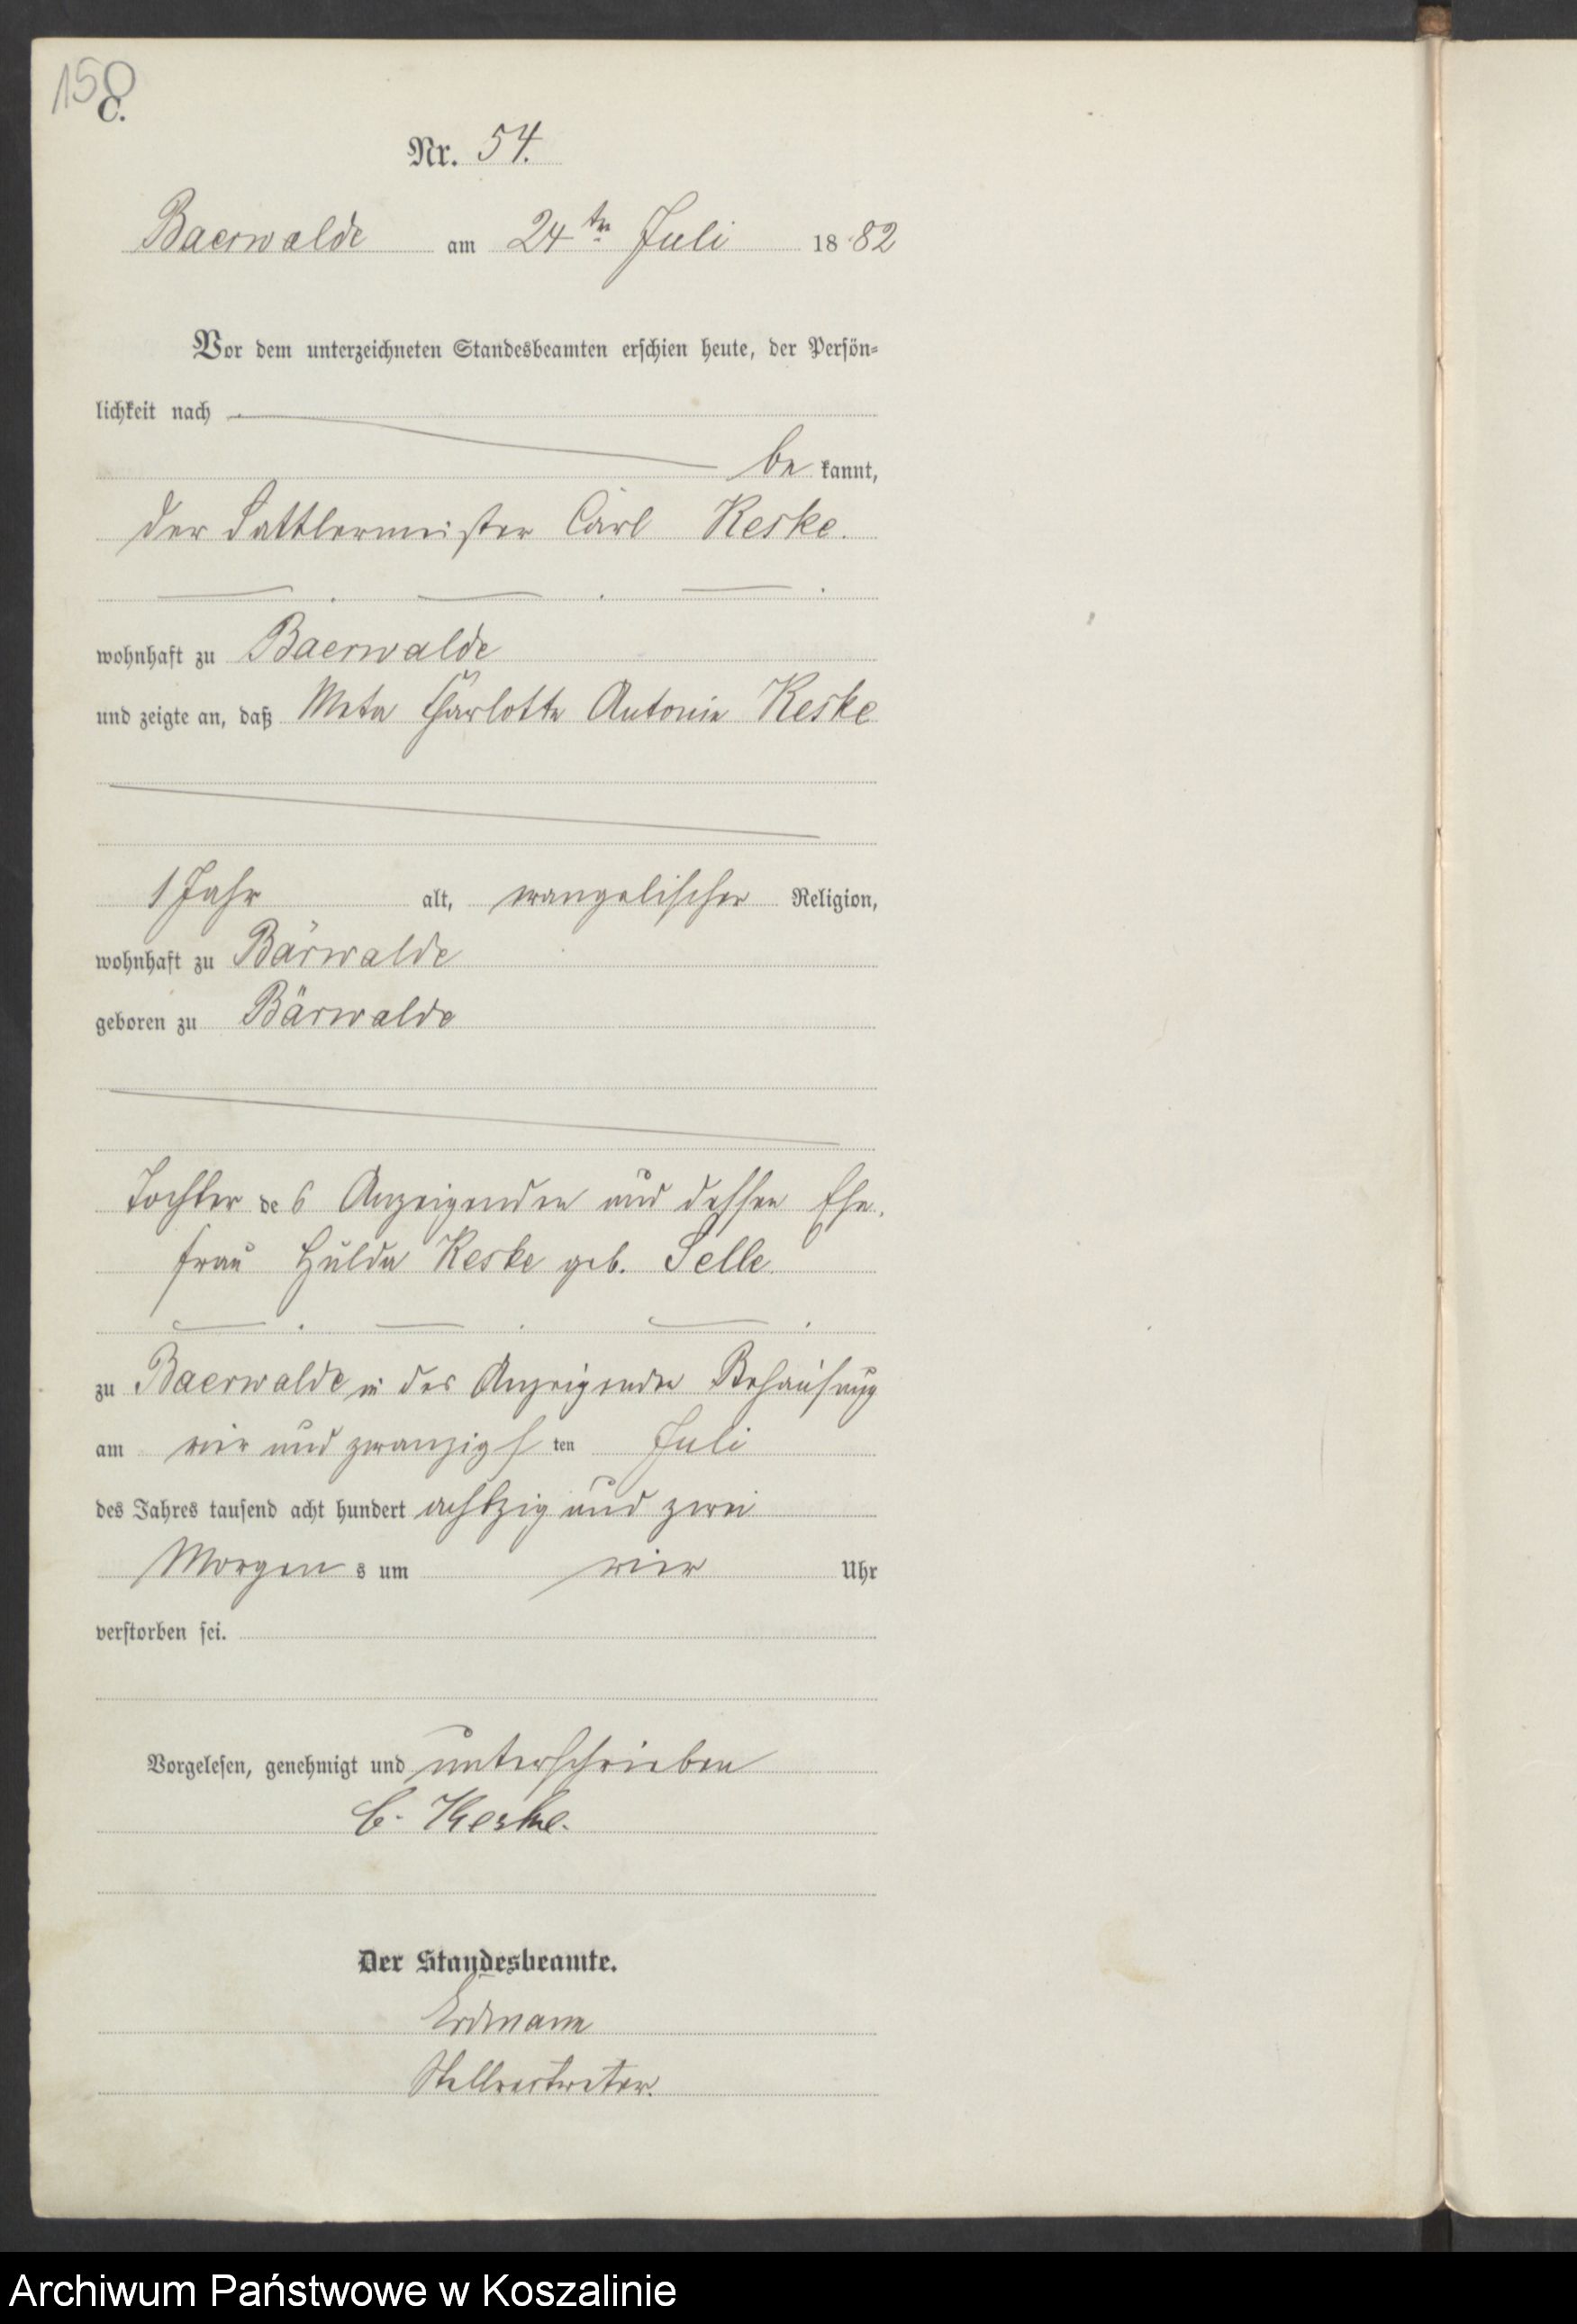 150
C.
Nr. 54.
Baerwalde am 24ten Juli 1882
Vor dem unterzeichneten Standesbeamten erschien heute, der Persön-
lichkeit nach
be kannt,
der Sattlermeister Carl Keske.
wohnhaft zu Baerwalde
und zeigte an, daß Meta Charlotte Antonie Keske
1 Jahr alt, evangelischer Religion,
wohnhaft zu Bärwalde
geboren zu Bärwalde
Tochter des Anzeigenden und dessen Ehe-
frau Hulda Keske geb. Selle
zu Baerwalde in des Anzeigenden Behausung
am vier und zwanzigsten Juli
des Jahres tausend acht hundert achtzig und zwei
Morgens um vier Uhr
verstorben sei.
Vorgelesen, genehmigt und unterschrieben
C. Keske.
Der Standesbeamte.
Erdmann
Stellvertreter.
Archiwum Państwowe w Koszalinie